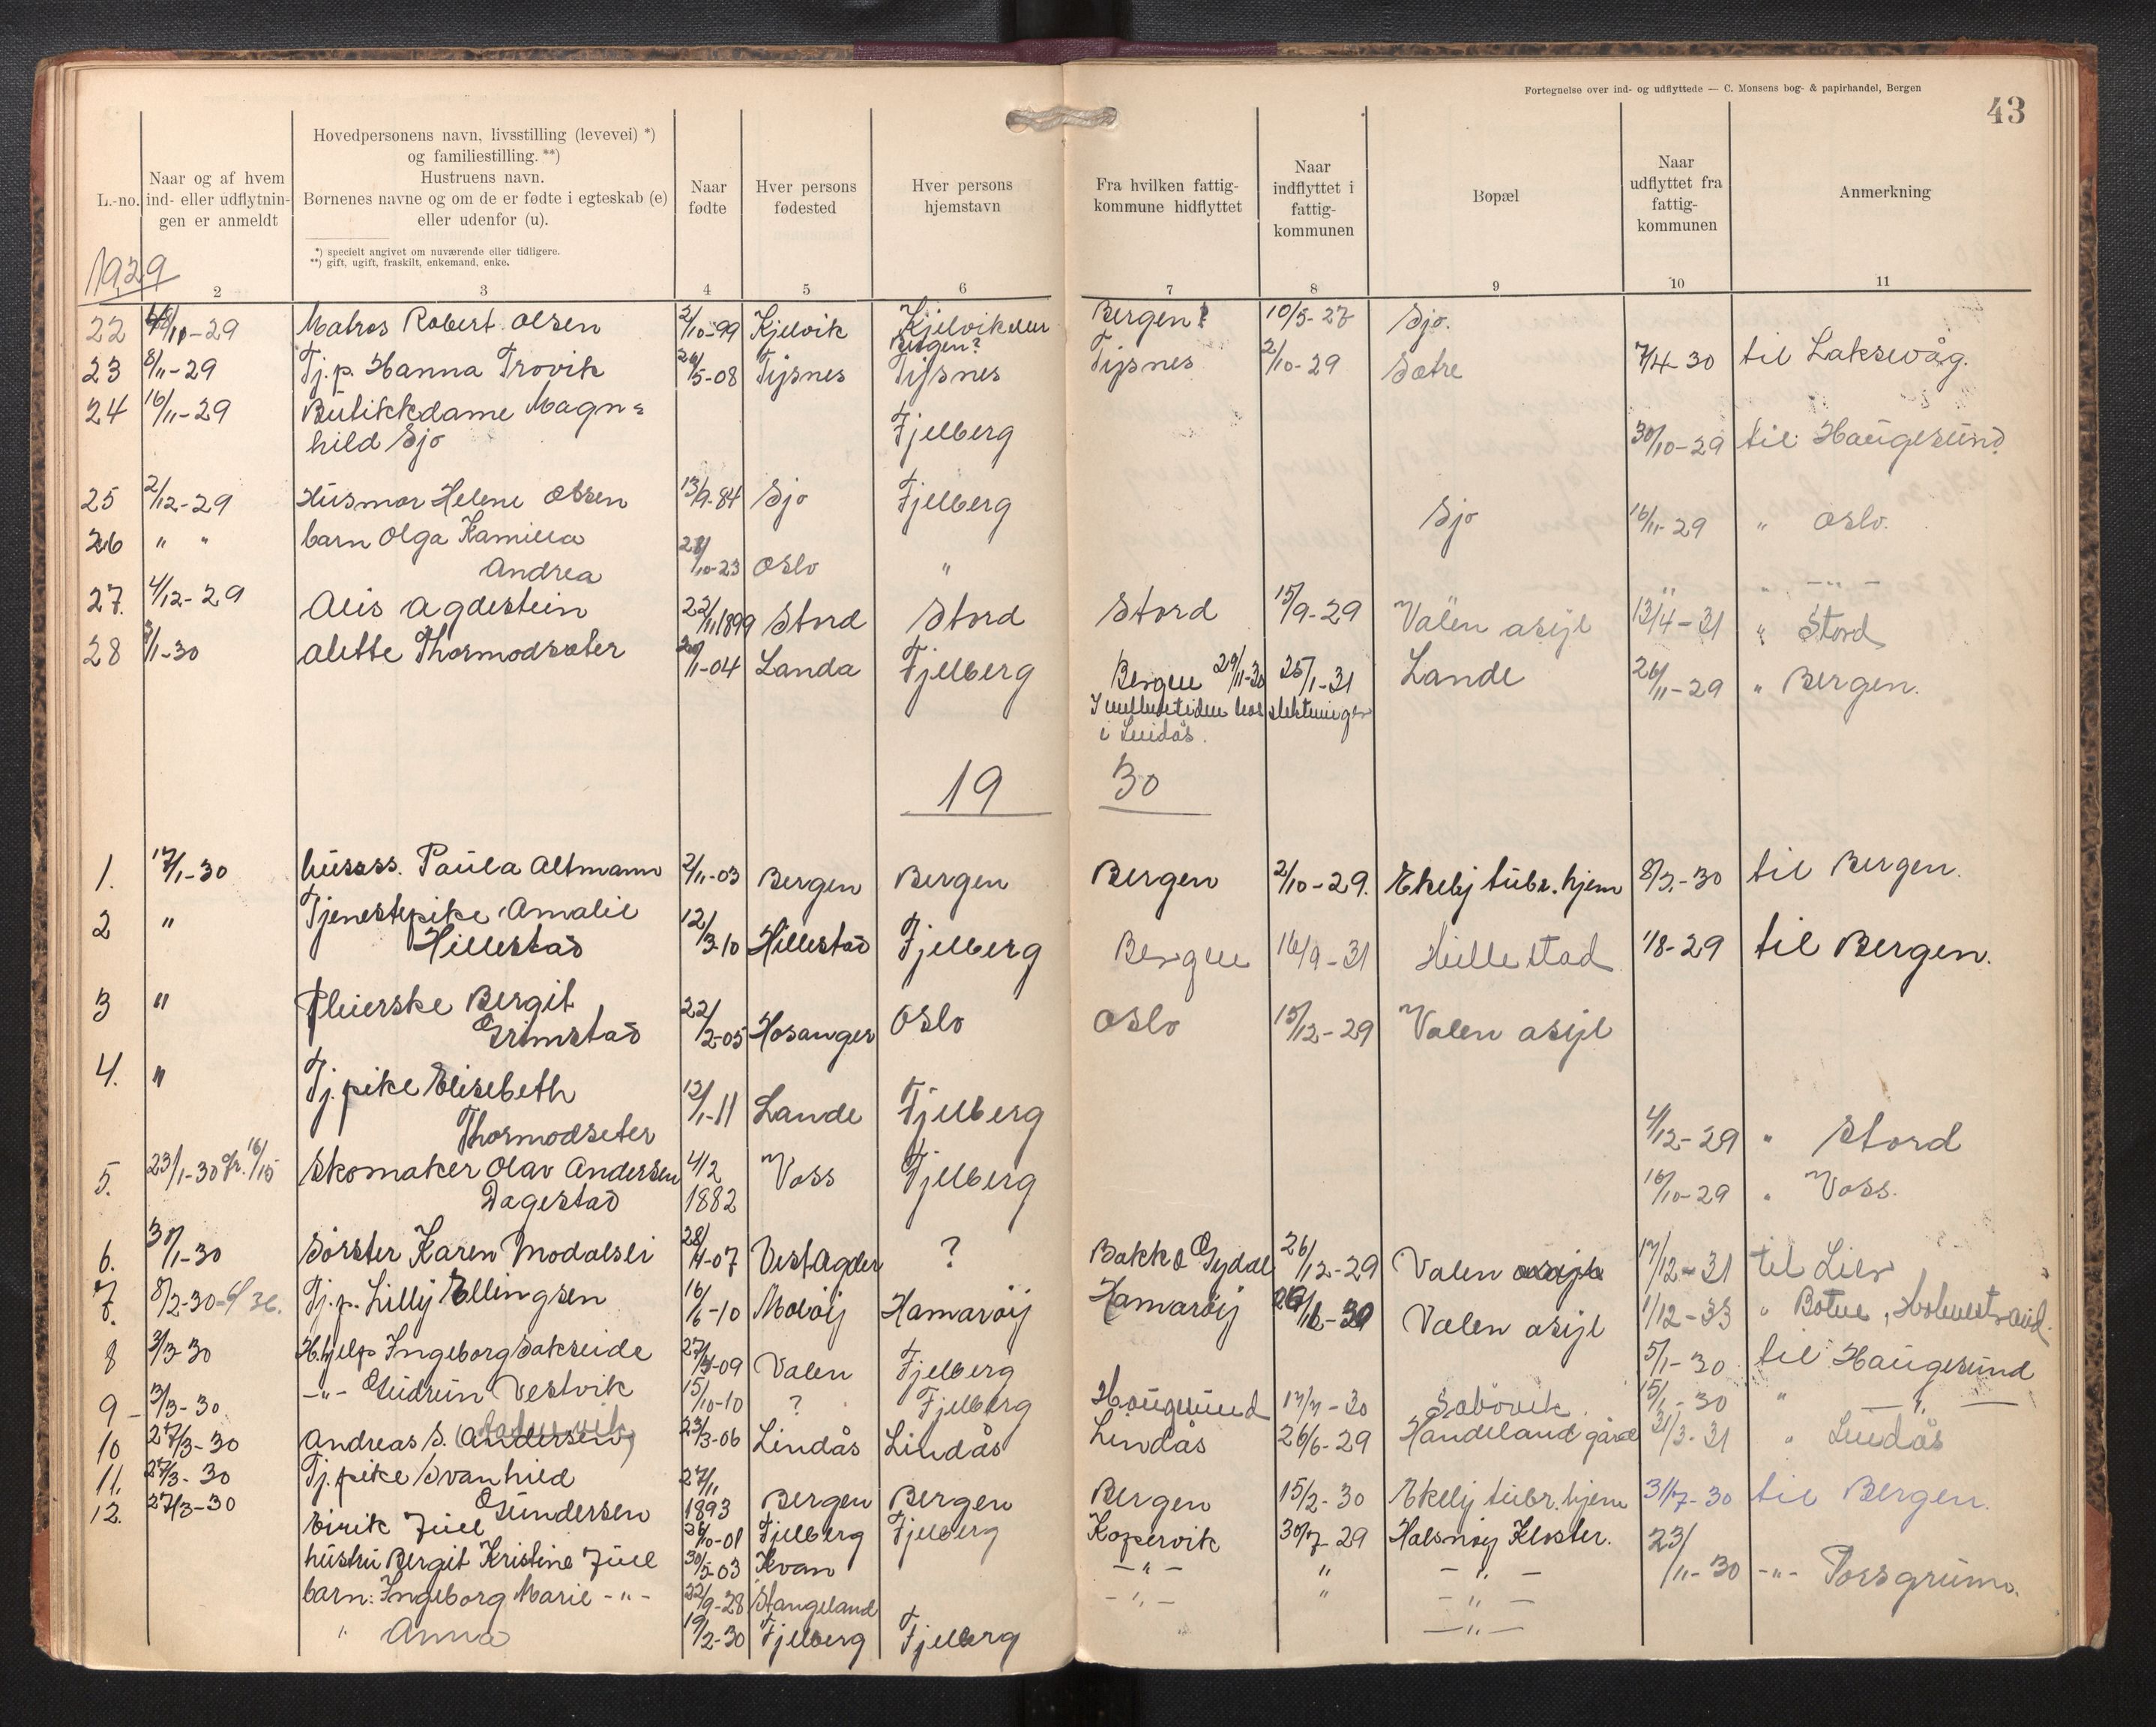 Fortegnelse over ind- og udflyttede — C. Monsens bog- & papirhandel, Bergen
43
L.-no.
Naar og af hvem
ind- eller udflytnin-
gen er anmeldt
Hovedpersonens navn, livsstilling (levevei) *)
og familiestilling. **)
Hustruens navn.
Børnenes navne og om de er fødte i egteskab (e)
eller udenfor (u).
*) specielt angivet om nuværende eller tidligere.
**) gift, ugift, fraskilt, enkemand, enke.
Naar
fødte
Hver persons
fødested
Hver persons
hjemstavn
Fra hvilken fattig-
kommune hidflyttet
Naar
indflyttet i
fattig-
kommunen
Bopæl
Naar
udflyttet fra
fattig-
kommunen
Anmerkning
1929
2 3 4 5 6 7 8 9 10 11
22 -29 Matros Robert Olsen 2/10-99 Kjelvik Kjelvik eller Bergen? 10/5-27 Sjo.
Bergen?
23 8/11-29 Tj.p. Hanna Trovik 26/5-08 Tysnes Tysnes Tysnes 2/10-29 Sætre 7/4-30 til Laksevåg.
24 16/11-29 Butikkdame Magn=
hild Sjo Fjelberg 30/10-29 til Haugesund.
25 2/12-29 Husmor Helene Olsen 13/9-84 Sjo Fjelberg Sjo 16/11-29 " Oslo.
26 " " barn Olga Kamilla
Andrea 28/10-23 Oslo " " " - " -
27. 4/12-29 Alis Agdestein 22/11 1899 Stord Stord Stord 15/9-29 Valen asyl 13/4-31 " Stord
28 /1-30 Alette Thormodsæter 20/11-04 Landa Fjelberg Bergen 29/11-30 25/1-31 Lande 26/11-29 " Bergen.
I mellemtiden hos slektninger
i Lindås.
19 30
1. 17/1-30 Paula Altmann 2/11-03 Bergen Bergen Bergen 2/10-29. Ekely tubr. hjem 8/3-30 til Bergen.
2 " Tjenestepike Amalie
Hillestad 12/3-10 Hillestad Fjelberg Bergen 16/9-31 Hillestad 1/8-29 til Bergen.
3 " Pleierske Bergit
Grimstad 22/2-05 Hosanger Oslo Oslo 15/12-29 Valen asyl
4. " Tj. pike Elisebeth
Thormodseter 12/1-11 Lande Fjelberg 4/12-29 " Stord
5. 23/1-30 16/15 Skomaker Olav Andersen
Dagestad 4/2 1882 Voss Fjelberg 16/10-29 " Voss.
6. 30/1-30 Søster Karen Modalsli 28/4-07 Vest Agder ? Bakke Gydal 26/12-29 Valen asyl 17/12-31 til Lier
7. 8/2-30 Tj.p. Lilly Ellingsen 16/6-10 Moløy Hamarøy Hamarøy -30 Valen asyl 1/12-33 " Botne, Holmestrand.
8 3/3-30 H.hjelp Ingeborg Sakseide 27/4-09 Valen Fjelberg 5/1-30 til Haugesund
9 - 13/3-30 -"- Gudrun Vestvik 15/10-10 ? Fjelberg Haugesund 17/7-30 Sabøvik. 15/1-30 " - " -
10 27/3-30 Andreas S. (Andersen) 23/3-06 Lindås Lindås Lindås 26/6-29 Handeland gård 31/3-31 " Lindås
11. 27/3-30 Tj. pike Svanhild
Gundersen 27/11 1893 Bergen Bergen Bergen 15/2-30 Ekely tubr. hjem 31/7-30 til Bergen.
12. 27/3-30 Eirik Juel /10-01 Fjelberg Fjelberg Kopervik 30/7-29 Halsnøy Kloster. 23/11-30 -"- Porsgrunn.
hustru Bergit Kristine Juel 30/5-03 Kvam - " - " - " -
barn: Ingeborg Marie -"- 22/9-28 Stangeland - " - " - " -
" Anna 19/2-30 Fjelberg Fjelberg - " -